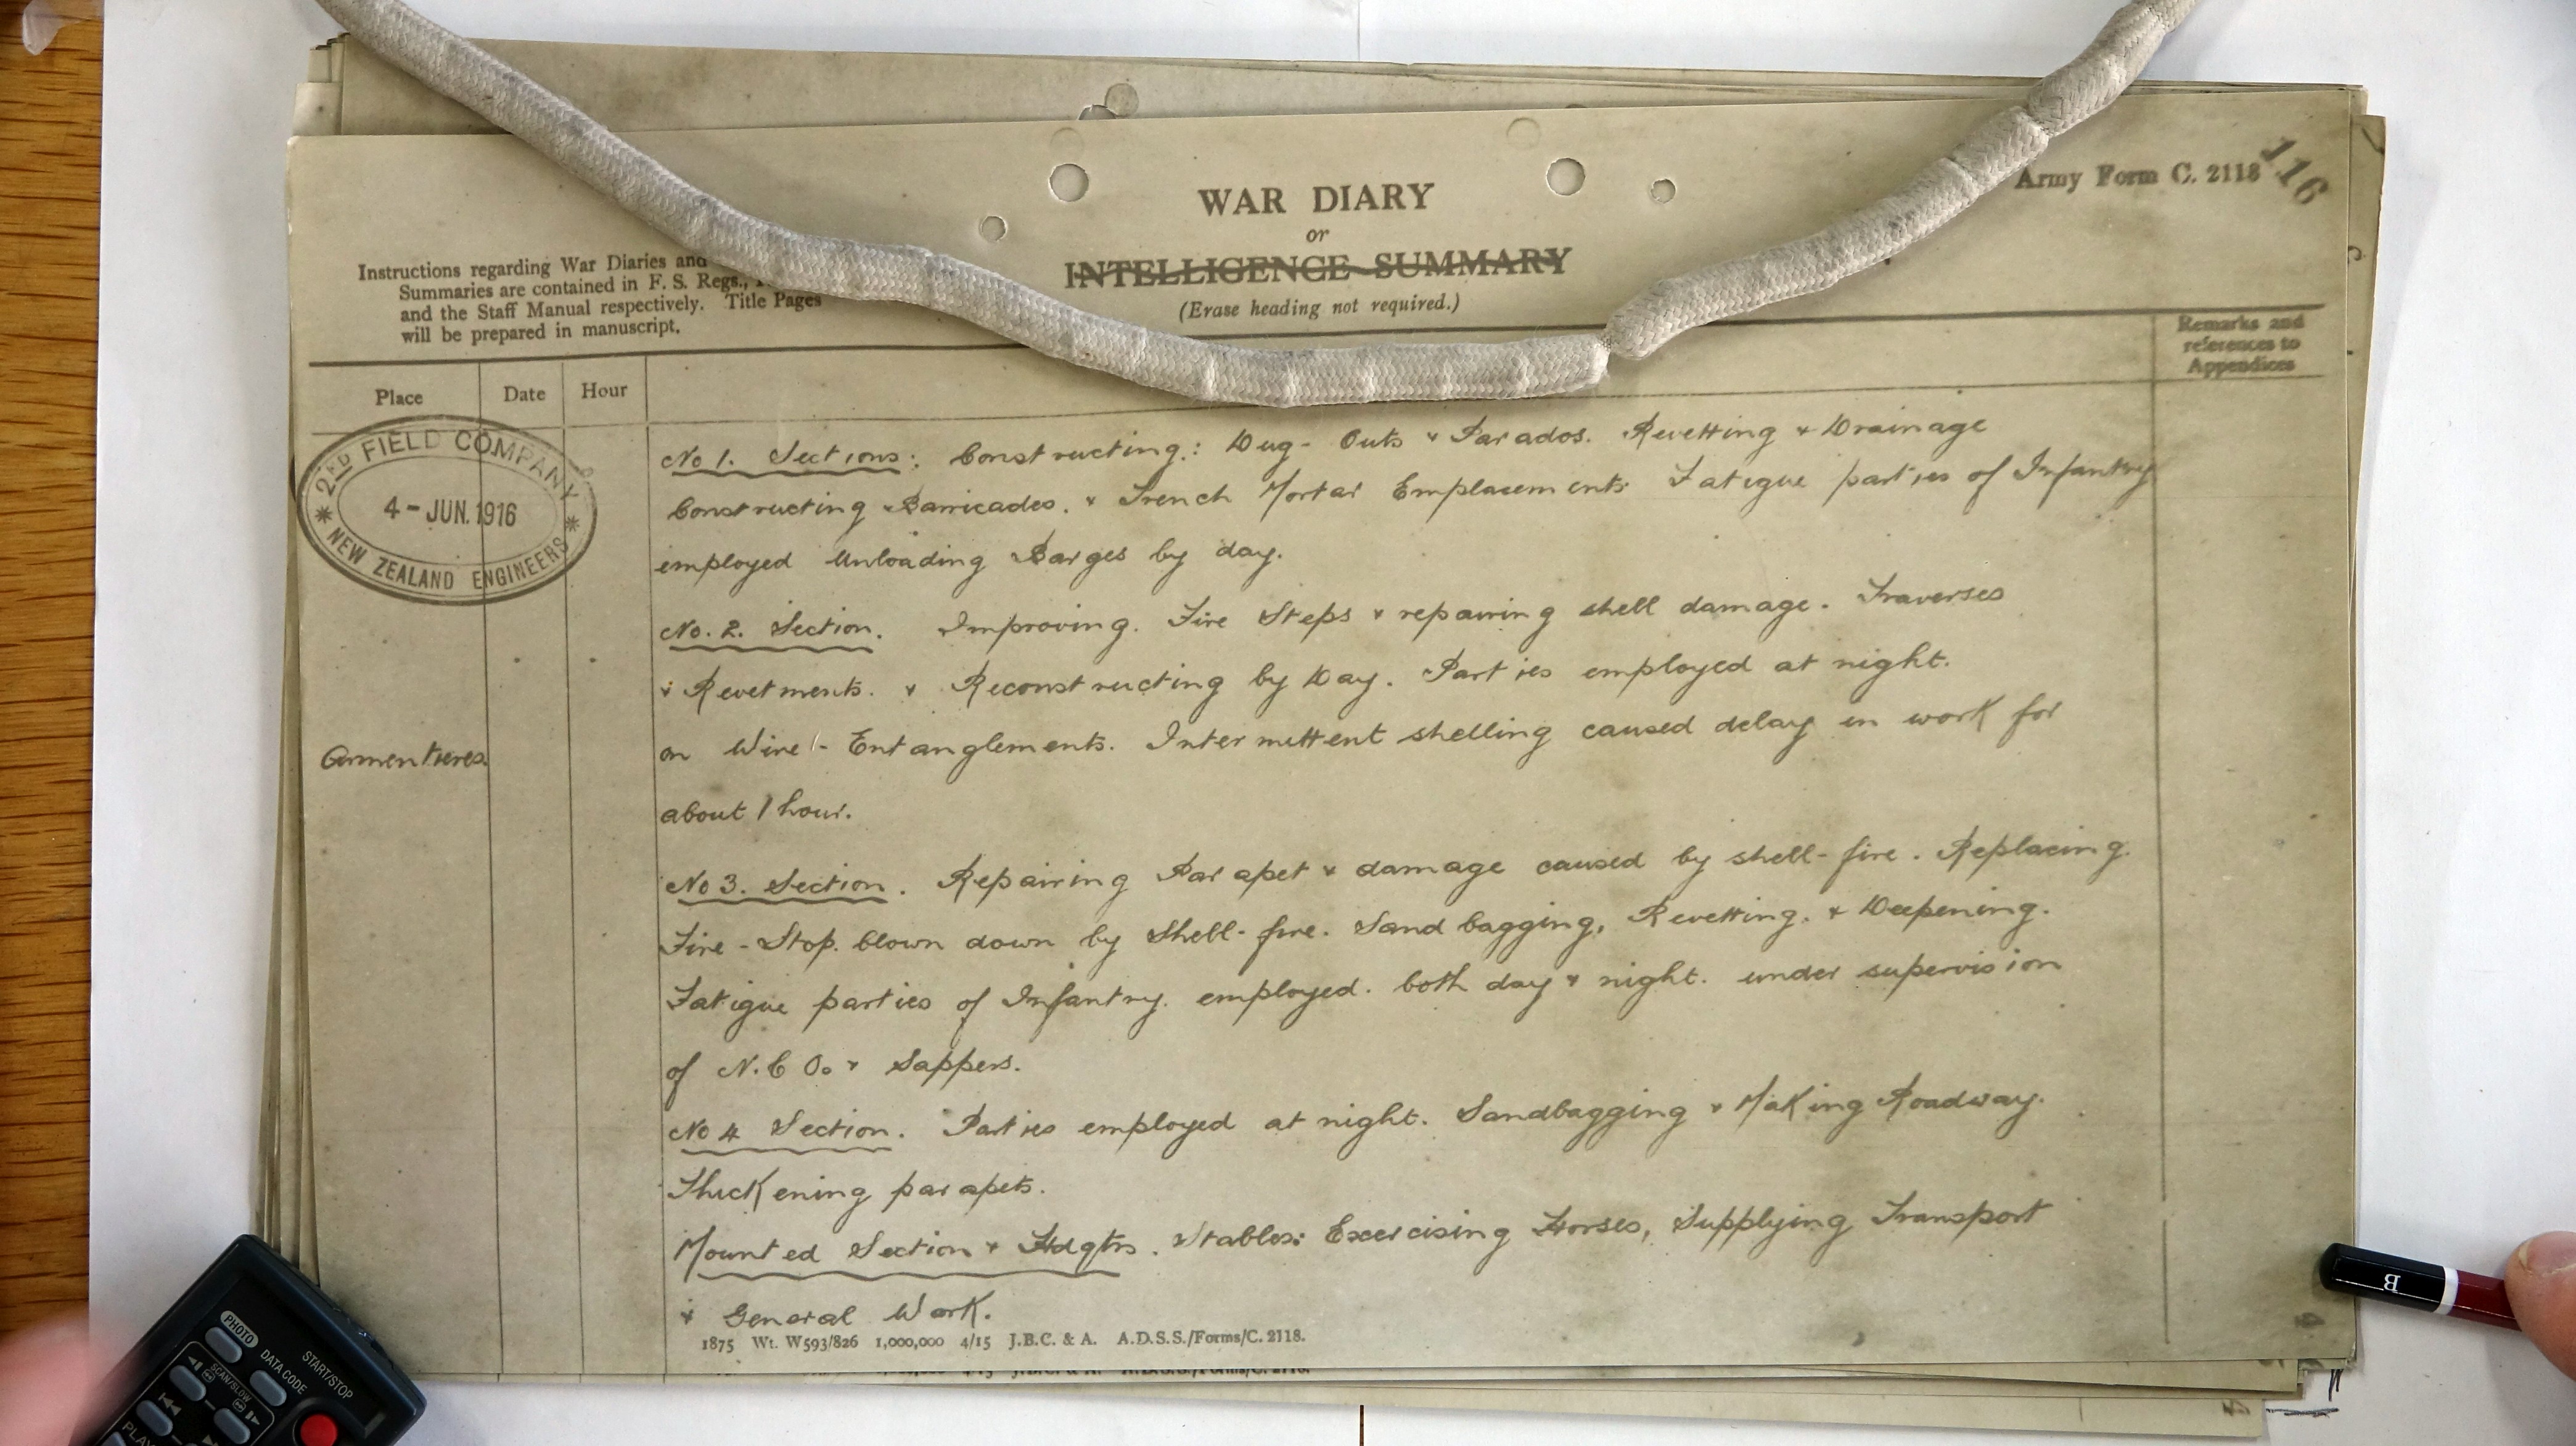 116
Army Form C. 2118
WAR DIARY
or
INTELLIGENCE SUMMARY
(Erase heading not required.)
Instructions regarding War Diaries and
Summaries are contained in F. S. Regs.,
and the Staff Manual respectively. Title Pages
will be prepared in manuscript.
Remarks and
references to
Appendices
Place Date Hour
2ND FIELD COMPANY
4 - JUN. 1916
NEW ZEALAND ENGINEERS
Armentieres.
No 1. Sections: Constructing: Dug-Outs & Parados. Revetting & Drainage
Constructing Barricades. & Trench Mortar Emplacements Fatigue parties of Infantry
employed Unloading Barges by day.
No. 2. Section. Improving. Fire Steps & repairing shell damage. Traverses
& Revetments. & Reconstructing by Day. Parties employed at night.
on Wire - Entanglements. Intermittent shelling caused delay in work for
about 1 hour.
No 3. Section. Repairing Parapet & damage caused by shell-fire. Replacing.
Fire-Stop. blown down by Shell-fire. Sand bagging, Revetting. & Deepening.
Fatigue parties of Infantry. employed. both day & night. under supervision
of N.C Os & Sappers.
No 4 Section. Parties employed at night. Sandbagging & Making Roadway.
Thickening parapets.
Mounted Section & Hdqtrs. Stables: Exercising Horses, Supplying Transport
& General Work.
1875 Wt. W593/826 1,000,000 4/15 J.B.C. & A. A.D.S.S./Forms/C. 2118.
PHOTO
DATA CODE
START/STOP
SCAN/SLOW
PLAY
B